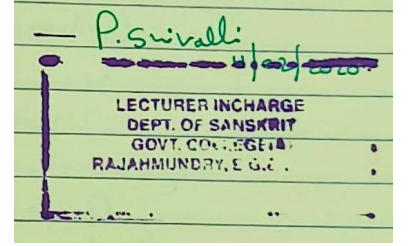 P. Srivalli
LECTURER INCHARGE
DEPT. OF SANSKRIT
GOVT. COLLEGE(A)
RAJAHMUNDRY, E.G.